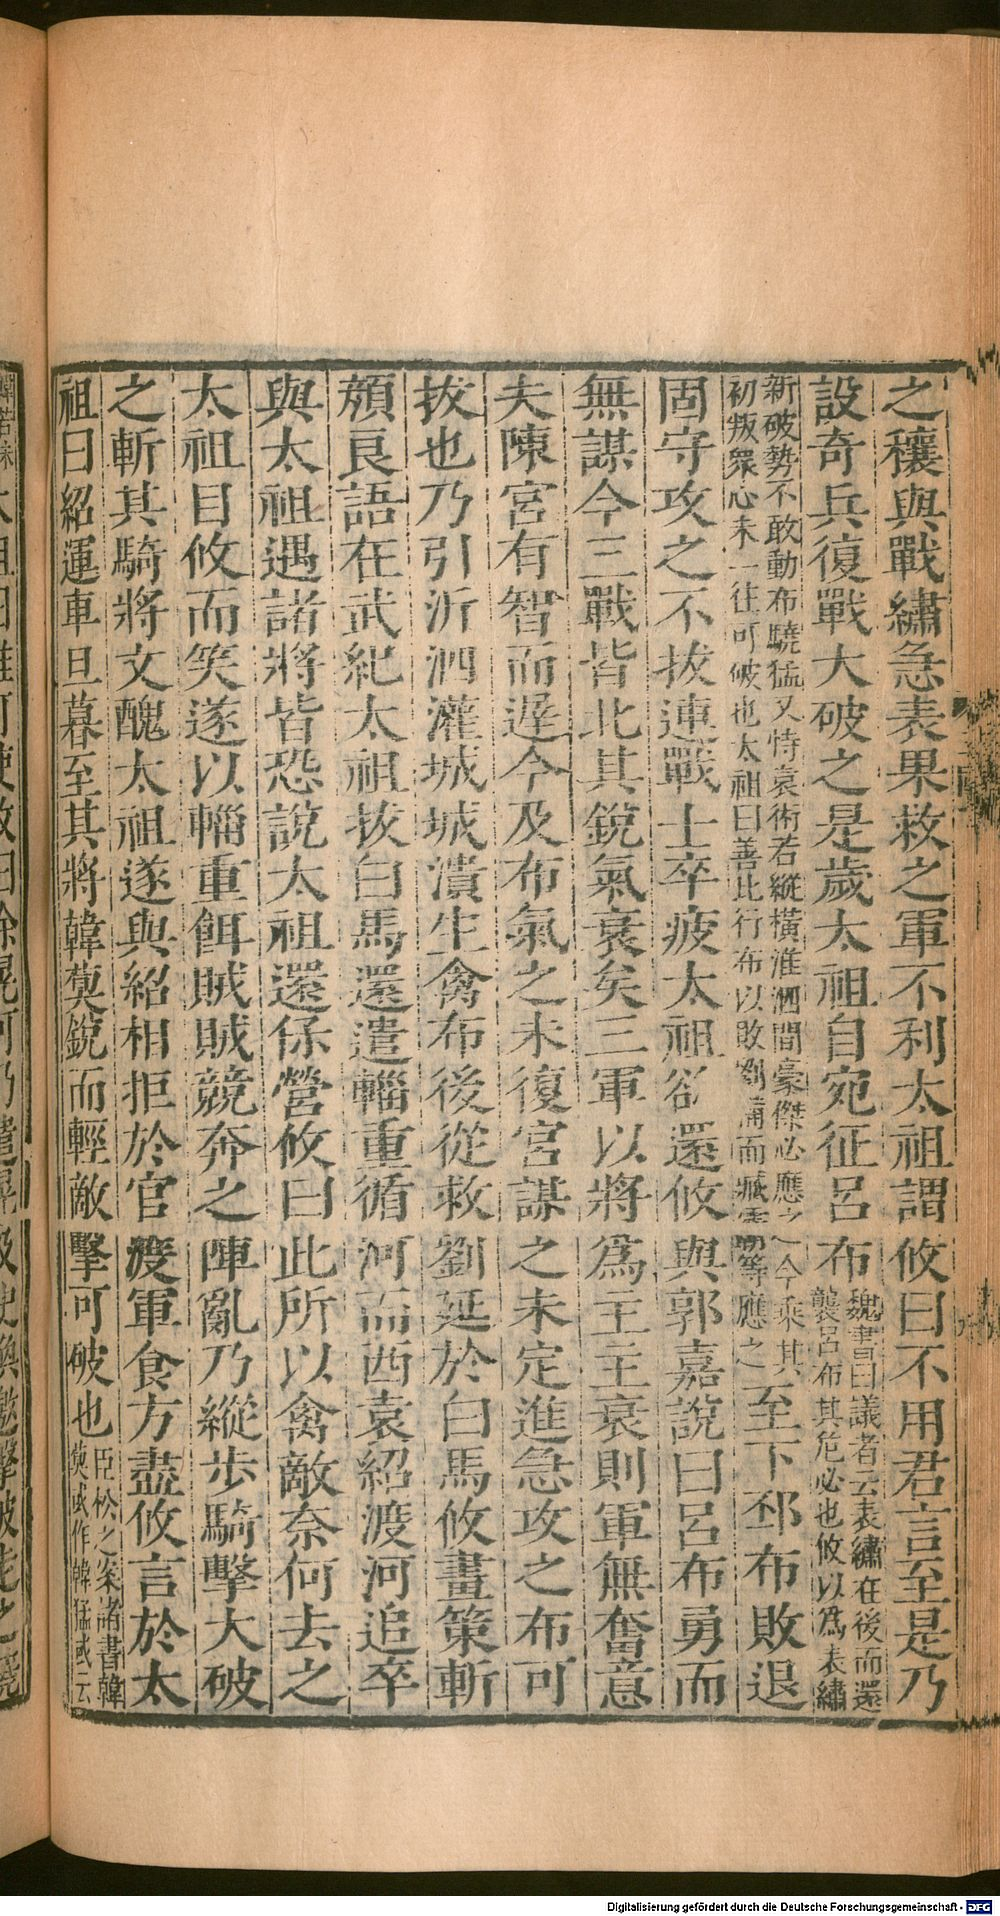 之穰與戰繡急表果救之軍不利太祖謂攸曰不用君言至是乃
設奇兵復戰大破之是歲太祖自宛征呂布魏書曰議者云表繡在後而還
襲呂布其危必也攸以爲表繡
新破勢不敢動布驍猛又恃袁術若縱橫淮泗間豪傑必應之今乘其
初叛衆心未一往可破也太祖曰善比行布以敗劉備而臧霸等應之
至下邳布敗退
固守攻之不拔連戰士卒疲太祖欲還攸與郭嘉說曰呂布勇而
無謀今三戰皆北其銳氣衰矣三軍以將爲主主衰則軍無奮意
夫陳宮有智而遲今及布氣之未復宮謀之未定進急攻之布可
拔也乃引沂泗灌城城潰生禽布後從救劉延於白馬攸畫策斬
顏良語在武紀太祖拔白馬還遣輜重循河而西袁紹渡河追卒
與太祖遇諸將皆恐說太祖還保營攸曰此所以禽敵奈何去之
太祖目攸而笑遂以輜重餌賊賊競奔之陣亂乃縱步騎擊大破
之斬其騎將文醜太祖遂與紹相拒於官渡軍食方盡攸言於太
祖曰紹運車旦暮至其將韓䔳銳而輕敵擊可破也臣松之案諸書韓
䔳或作韓猛或云
Digitalisierung gefördert durch die Deutsche Forschungsgemeinschaft - DFG